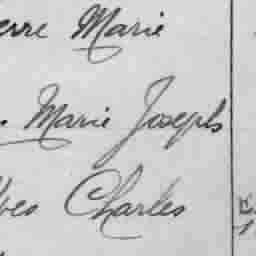 erre Marie
. Marie Joseph
Yves Charles